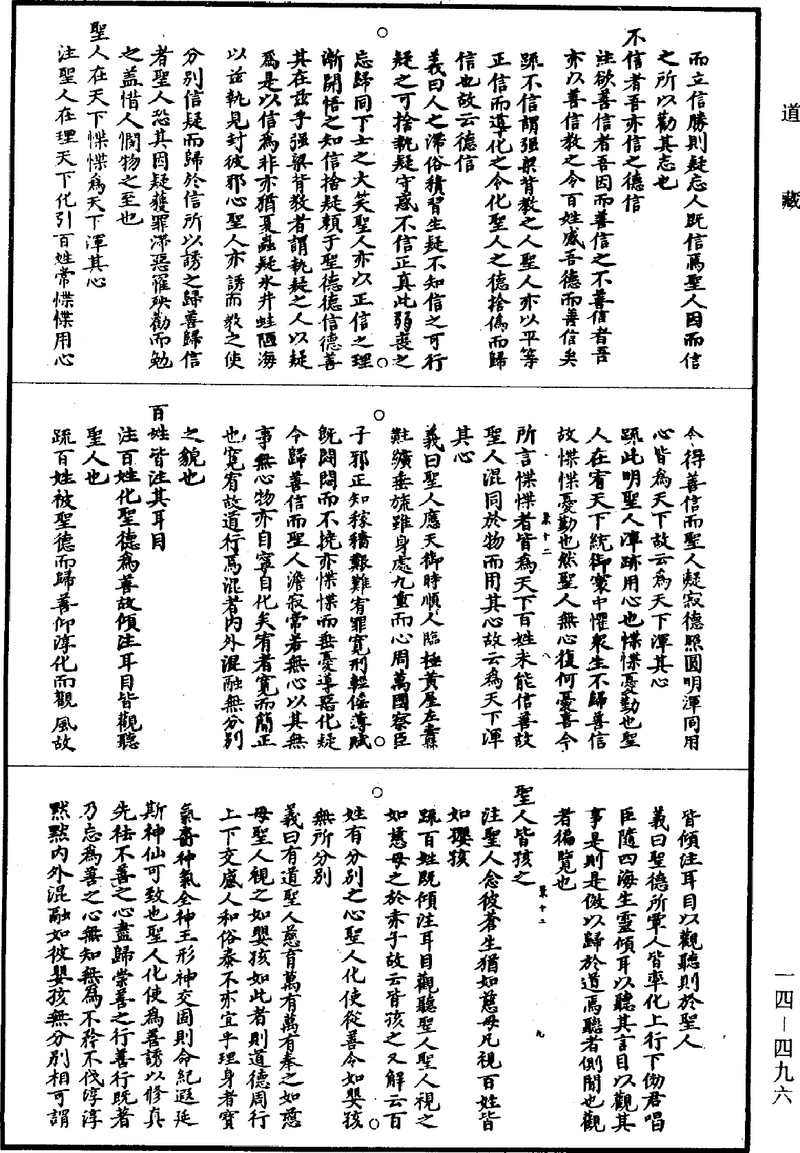 道藏
而立信勝則疑忘人既信焉聖人因而信
之所以勸其志也
不信者吾亦信之德信
注欲善信者吾因而善信之不善信者吾
亦以善信教之令百姓感吾德而善信矣
疏不信謂强梁背教之人聖人亦以平等
正信而導化之令化聖人之德捨偽而歸
信也故云德信
義曰人之滯俗積習生疑不知信之可行
疑之可捨執疑守惑不信正真此弱喪之
忘歸同下士之大笑聖人亦以正信之理
漸開悟之知信捨疑頼于聖德德信德善
其在玆乎强梁背教者謂執疑之人以疑
爲是以信為非亦猶夏蟲疑氷井蛙陋海
以玆執見封彼邪心聖人亦誘而教之使
分別信疑而歸於信所以誘之歸善歸信
者聖人恐其因疑獲罪滯惡罹殃勸而勉
之盖惜人憫物之至也
聖人在天下惵惵為天下渾其心
注聖人在理天下化引百姓常惵惵用心
令得善信而聖人凝寂德照圓明渾同用
心皆為天下故云為天下渾其心
疏此明聖人渾跡用心也惵惵憂勤也聖
人在宥天下統御寰中懼衆生不歸善信
故惵惵憂勤也然聖人無心復何憂喜今
所言惵惵者皆為天下百姓未能信善故
聖人混同於物而用其心故云為天下渾
其心
義曰聖人應天御時順人臨極黄屋左纛
黈纊垂旒雖身處九重而心周萬國察臣
子邪正知稼穡艱難宥罪寛刑輕徭薄賦
既悶悶而不撓亦惵惵而垂憂導惡化疑
令歸善信而聖人澹寂常若無心以其無
事無心物亦自寧自化矣宥者寛而簡正
也寛宥故道行焉混者内外混融無分別
之貌也
百姓皆注其耳目
注百姓化聖德為善故傾注耳目皆觀聽
聖人也
疏百姓被聖德而歸善仰淳化而觀風故
皆傾注耳目以觀聽則於聖人
義曰聖德所覃人皆率化上行下俲君唱
臣隨四海生靈傾耳以聽其言目以觀其
事是則是俲以歸於道焉聽者側聞也觀
者徧覽也
聖人皆孩之
注聖人念彼蒼生猶如慈母凡視百姓皆
如孾孩
疏百姓既傾注耳目觀聽聖人聖人視之
如慈母之於赤子故云皆孩之又解云百
姓有分別之心聖人化使從善令如嬰孩
無所分別
義曰有道聖人慈育萬有萬有奉之如慈
母聖人視之如嬰孩如此者則道德周行
上下交感人和俗泰不亦宜乎理身者寳
氣嗇神氣全神王形神交固則命紀遐延
斯神仙可致也聖人化使為善誘以修真
先祛不善之心盡歸崇善之行善行既著
乃忘為善之心無知無為不矜不伐淳淳
黙黙内外混融如彼嬰孩無分別相可謂
一四－四九六